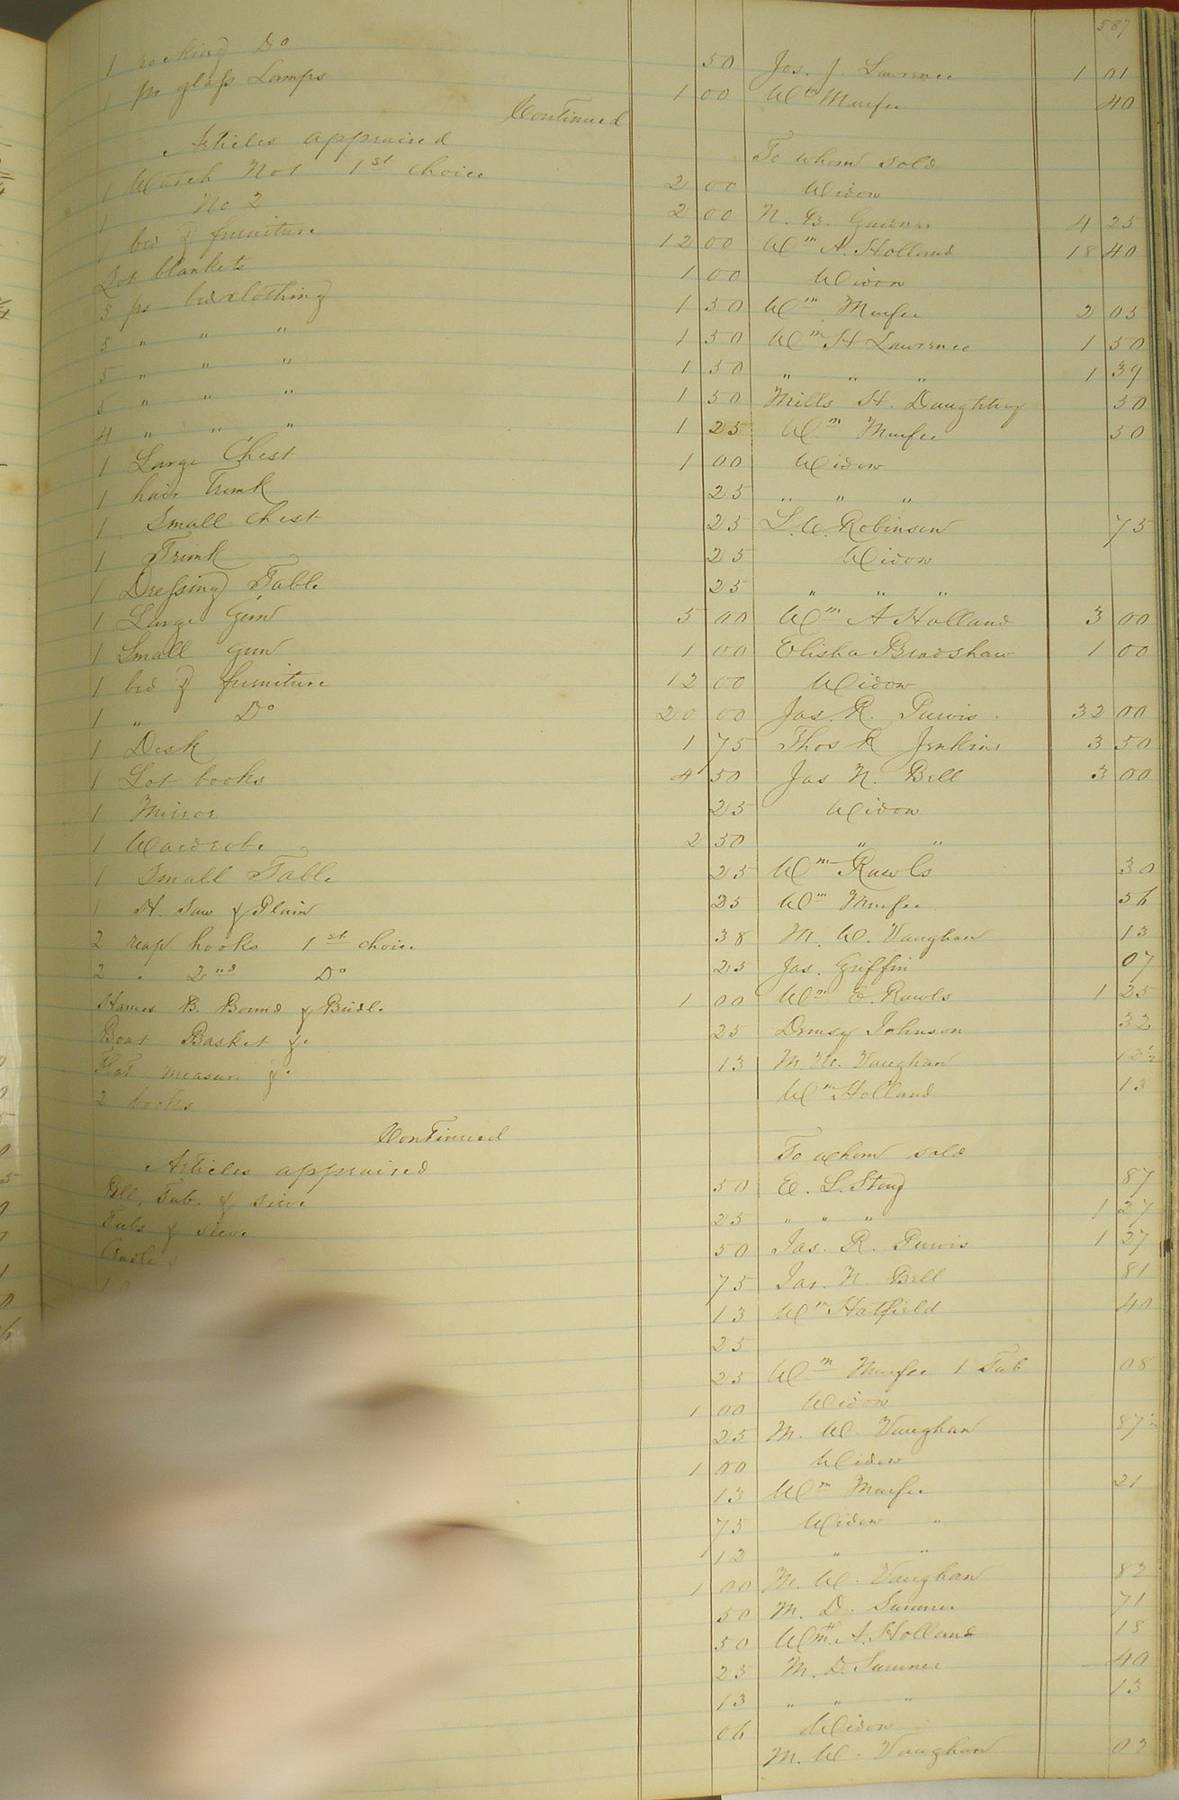 587
1 rocking Do 50 Jos. J. Lawrence 1 01
1 pr glass Lamps 1 00 Wm Murfee 40
Continued
Articles appraised To whom sold
1 Watch No 1 1st choice 2 00 Widow
1 No 2 2 00 N. G. 4 25
1 bed & furniture 12 00 Wm A. Holland 18 40
Lot blankets 1 00 Widow
5 ps bed clothing 1 50 Wm Murfee 2 05
5 " " " 1 50 Wm H Lawrence 1 50
5 " " " 1 50 " " " 1 39
5 " " " 1 50 Mills H. Daughtry 50
4 " " " 1 25 Wm Murfee 50
1 Large Chest 1 00 Widow
1 hair Trunk 25 " " "
1 Small Chest 25 L. W. Robinson 75
1 Trunk 25 Widow
1 Dressing Table 25 " " "
1 Large Gun 5 00 Wm A Holland 3 00
1 Small Gun 1 00 Elisha Bradshaw 1 00
1 bed & furniture 12 00 Widow
1 " Do 20 00 Jas. R. Purvis 32 00
1 Desk 1 75 Thos R Jenkins 3 50
1 Lot books 4 50 Jas N. Bell 3 00
1 Mirror 25 Widow
1 Wardrobe 2 50 " "
1 Small Table 25 Wm Rawls 30
1 H. Saw & Plain 25 Wm Murfee 56
2 reap hooks 1st choice 38 M. W. Vaughan 13
2 " 2nd Do 25 Jas. Griffin 07
Hames B. Bound & Bridle 1 00 Wm E. Rawls 1 25
Boat Basket &c 25 Johnson 32
measure &c 13 M. W. Vaughan 12½
2 hooks Wm Holland 13
Continued
Articles appraised To whom sold
Tub & sieve 50 E. L. 87
Tub & sieve 25 " " " 1 27
50 Jas. R. Purvis 1 27
75 Jas. N Bell 81
13 Wm Hatfield 40
25
25 Wm Murfee 1 Tub 08
1 00 Widow
25 M. W. Vaughan 87½
1 00 Widow
13 Wm Murfee 21
75 Widow "
12 " "
1 00 M. W. Vaughan 82
50 M. D. Sumner 71
50 Wm A. Holland 18
25 M. D. Sumner 40
13 " " " 13
06 Widow
M. W. Vaughan 02